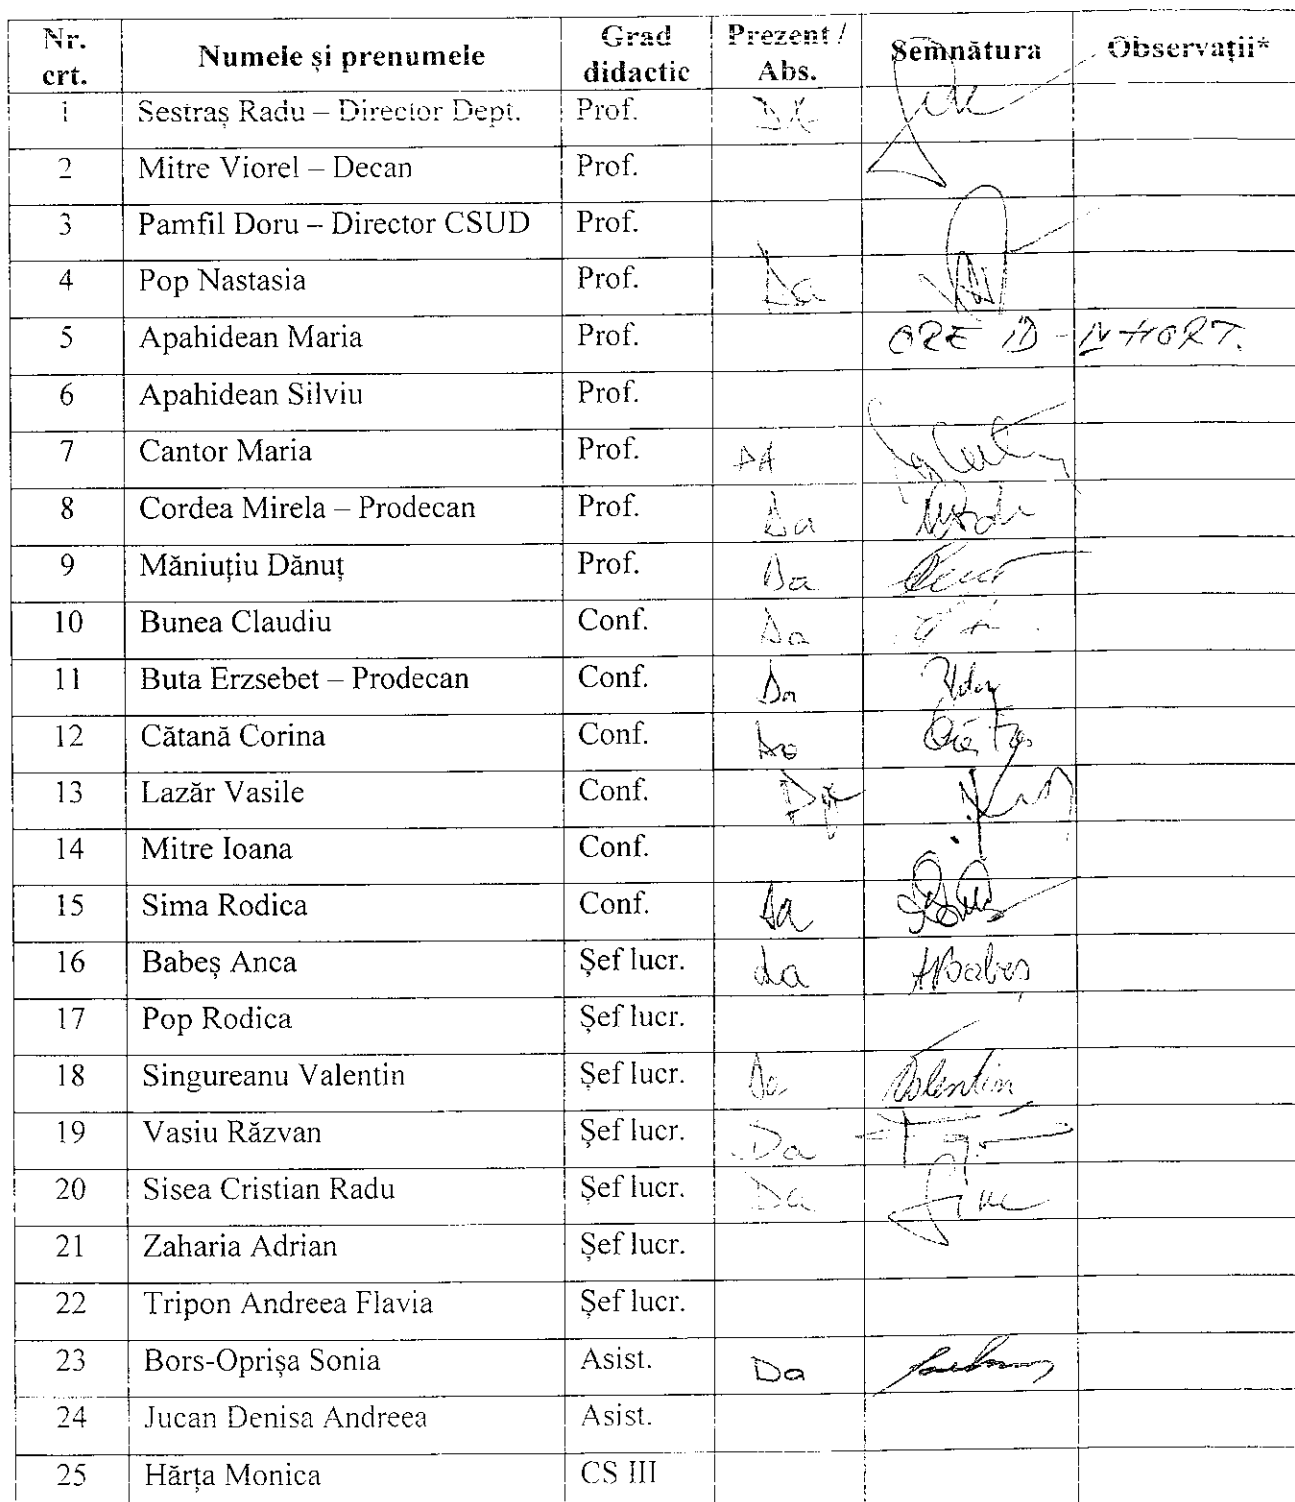 Nr. crt. Numele și prenumele Grad didactic Prezent / Abs. Semnătura Observații*
1 Sestraș Radu – Director Dept. Prof. DA
2 Mitre Viorel – Decan Prof.
3 Pamfil Doru – Director CSUD Prof.
4 Pop Nastasia Prof. Da
5 Apahidean Maria Prof. ORE ID - IV HORT.
6 Apahidean Silviu Prof.
7 Cantor Maria Prof. DA
8 Cordea Mirela – Prodecan Prof. Da
9 Măniuțiu Dănuț Prof. Da
10 Bunea Claudiu Conf. Da
11 Buta Erzsebet – Prodecan Conf. Da
12 Cătană Corina Conf. Da
13 Lazăr Vasile Conf. Da
14 Mitre Ioana Conf.
15 Sima Rodica Conf. Da
16 Babeș Anca Șef lucr. da ABabeș
17 Pop Rodica Șef lucr.
18 Singureanu Valentin Șef lucr. Da Valentin
19 Vasiu Răzvan Șef lucr. Da
20 Sisea Cristian Radu Șef lucr. Da
21 Zaharia Adrian Șef lucr.
22 Tripon Andreea Flavia Șef lucr.
23 Bors-Oprișa Sonia Asist. Da
24 Jucan Denisa Andreea Asist.
25 Hărța Monica CS III